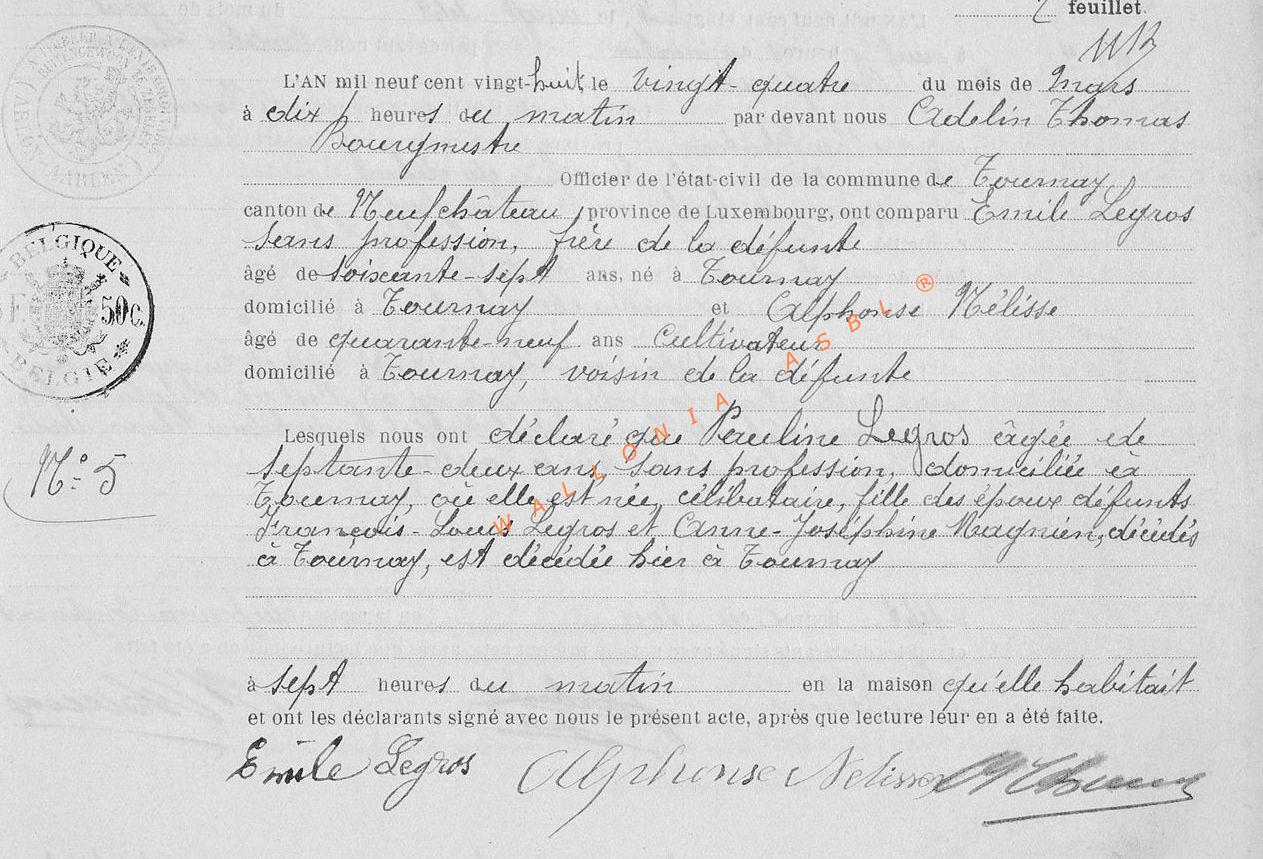 2 feuillet.
L'AN mil neuf cent vingt-huit le vingt-quatre du mois de Mars
à dix heures du matin par devant nous Adelin Thomas
Bourgmestre
Officier de l'état-civil de la commune de Tournay,
canton de Neufchâteau, province de Luxembourg, ont comparu Emile Legros
sans profession, frère de la défunte
âgé de soixante-sept ans, né à Tournay
domicilié à Tournay et Alphonse Nélisse
âgé de quarante-neuf ans Cultivateur
domicilié à Tournay, voisin de la défunte
Lesquels nous ont déclaré que Pauline Legros âgée de
septante-deux ans, sans profession, domiciliée à
Tournay, où elle est née, célibataire, fille des époux défunts
François-Louis Legros et Anne-Joséphine Magnien, décédés
à Tournay, est décédée hier à Tournay
à sept heures du matin en la maison qu'elle habitait
et ont les déclarants signé avec nous le présent acte, après que lecture leur en a été faite.
Emile Legros Alphonse Nelisse AThomas
BELGIQUE
50c.
BELGIË
N° 5
WALLONIA ASBL ®